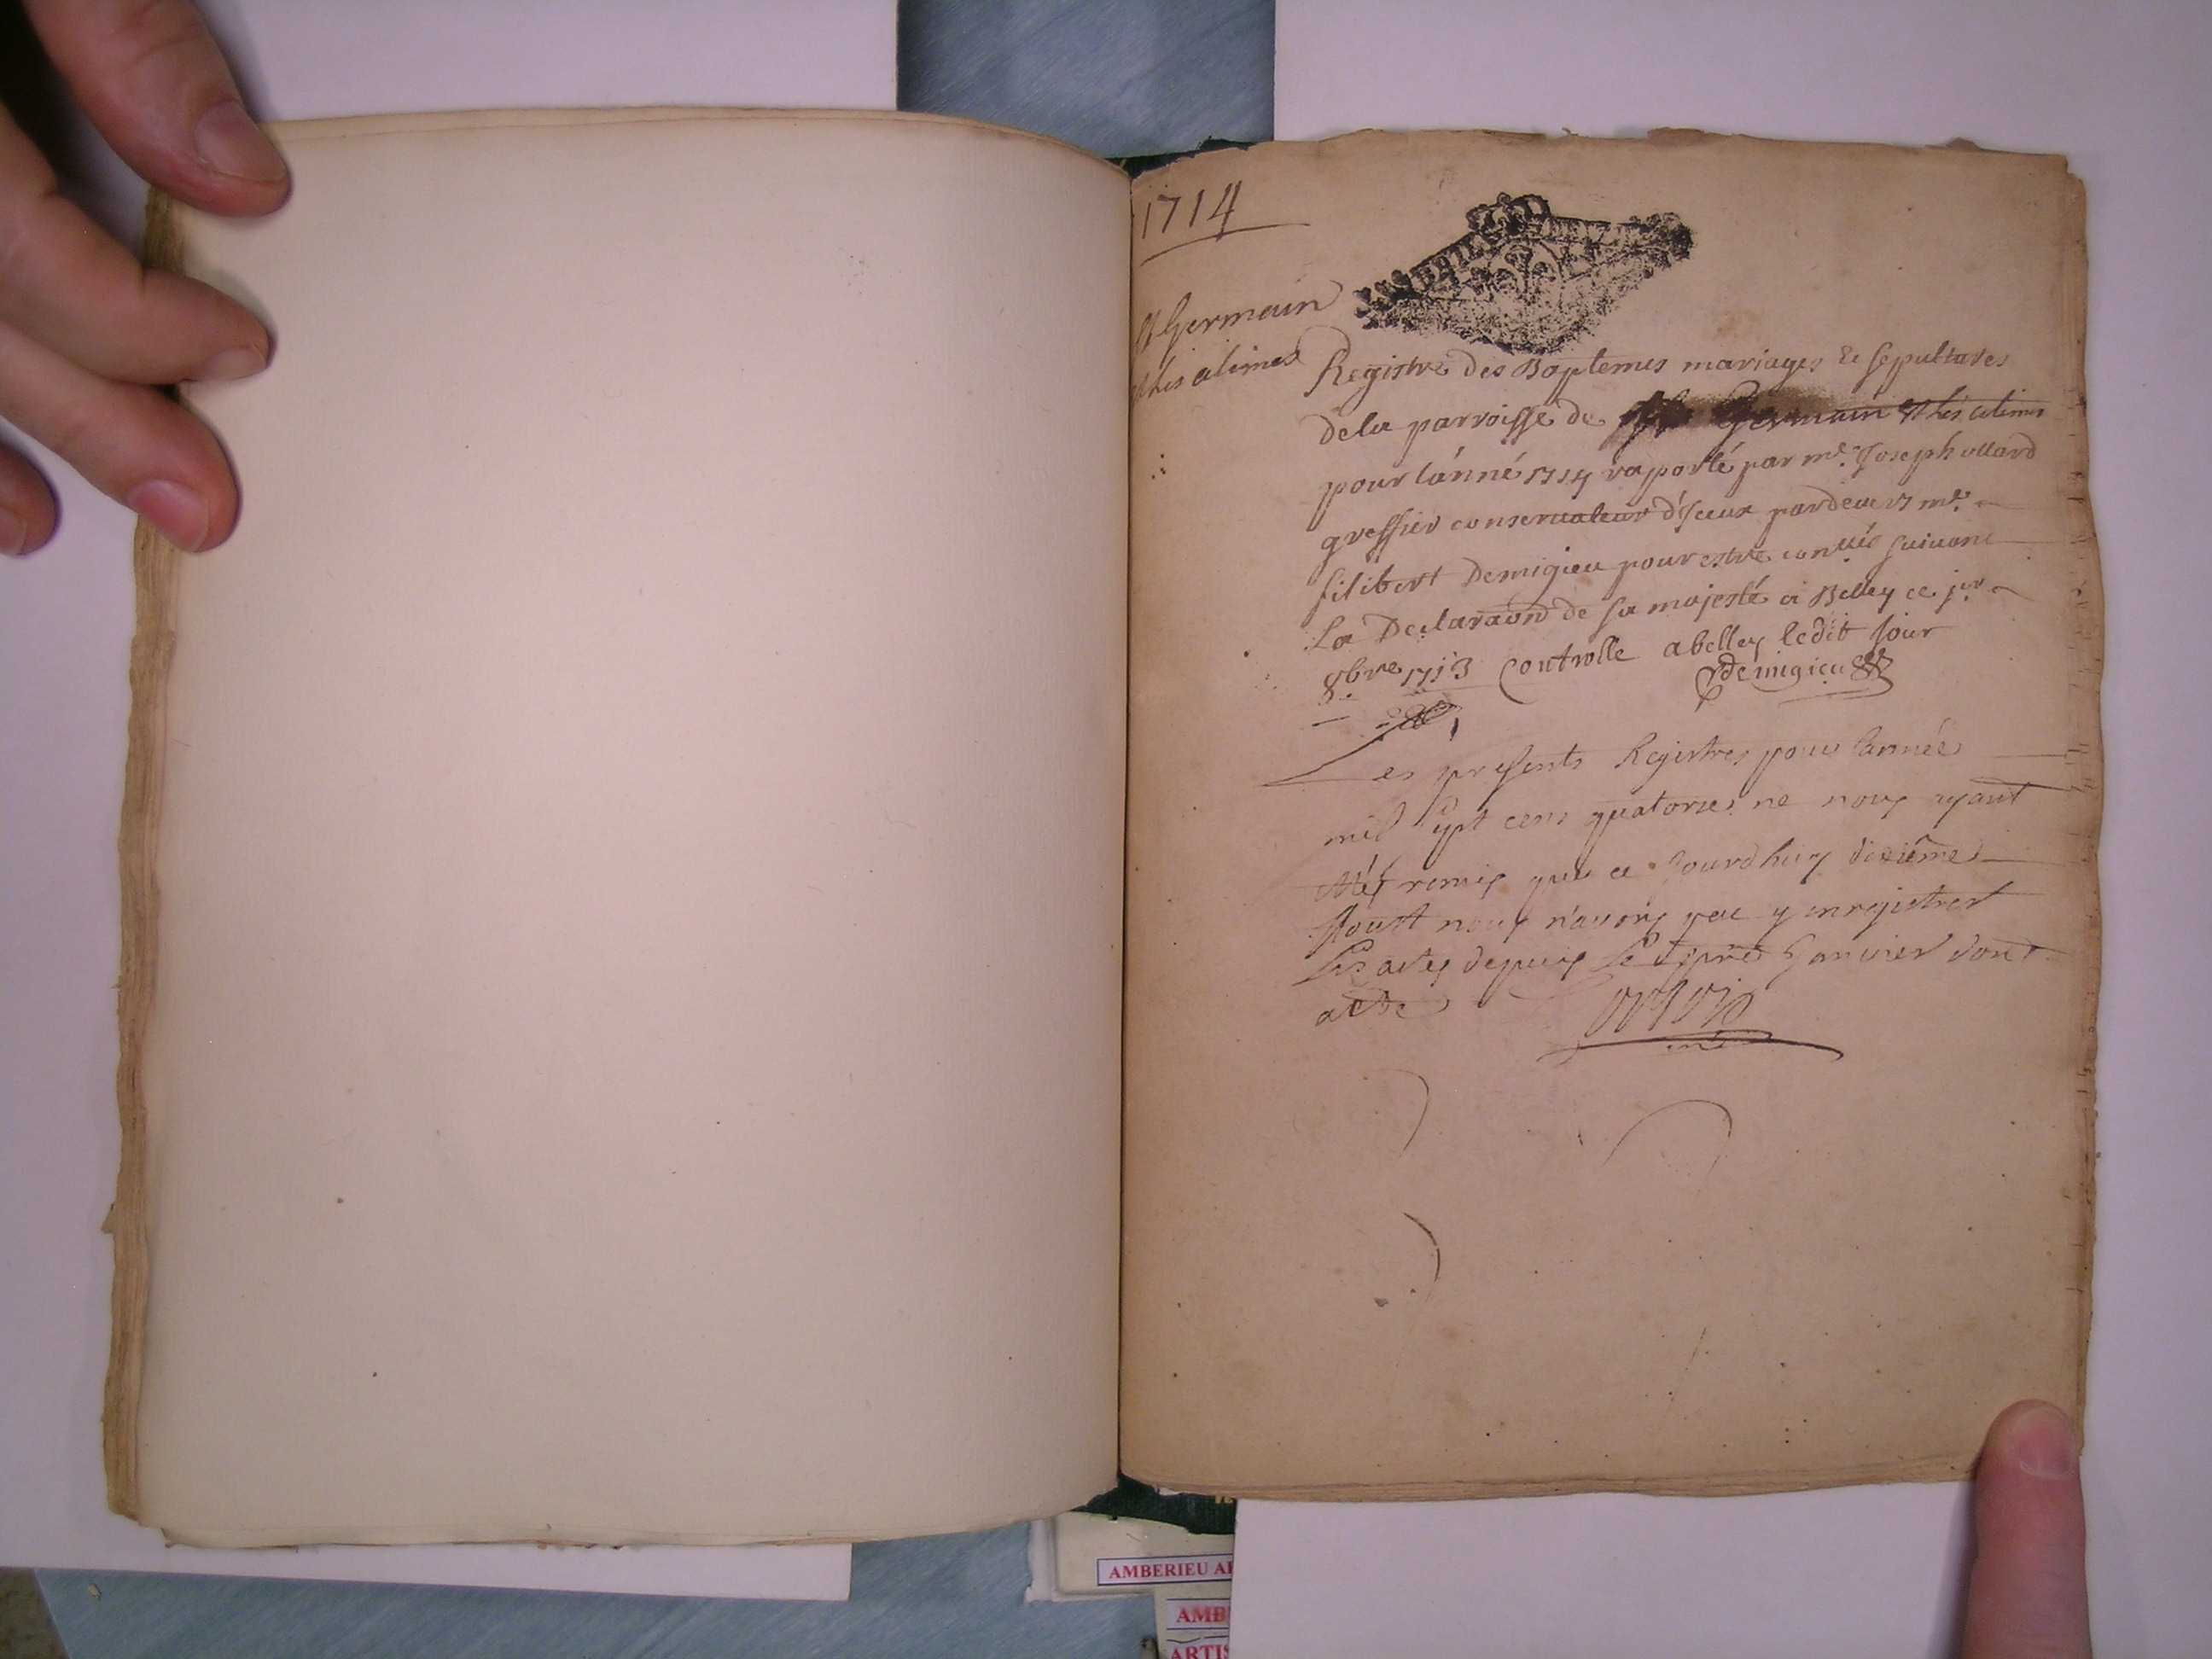 1714
St Germain
et les alimes
Registre des Baptemes mariages et sepultures
dela parroisse de St Germain et les alimes
pour lánné 1714 raporté par me. Joseph ollard
greffier conservateur d'Iceux pardevers me.
filibert Demigieu pour estre suivant
La Declaraon de sa majesté a Belley ce jer
8bre 1713 Controlle abelley ledit Jour
Demigieu
Les presents Registres pour lannée
mil sept cens quatorse ne nous ayant
estés remis que ce Jourdhuy dixiême
Aoust nous n'avons peu y enregistrer
Les actes depuis le Janvier dont
acte
AMBERIEU
AMB
ARTIS